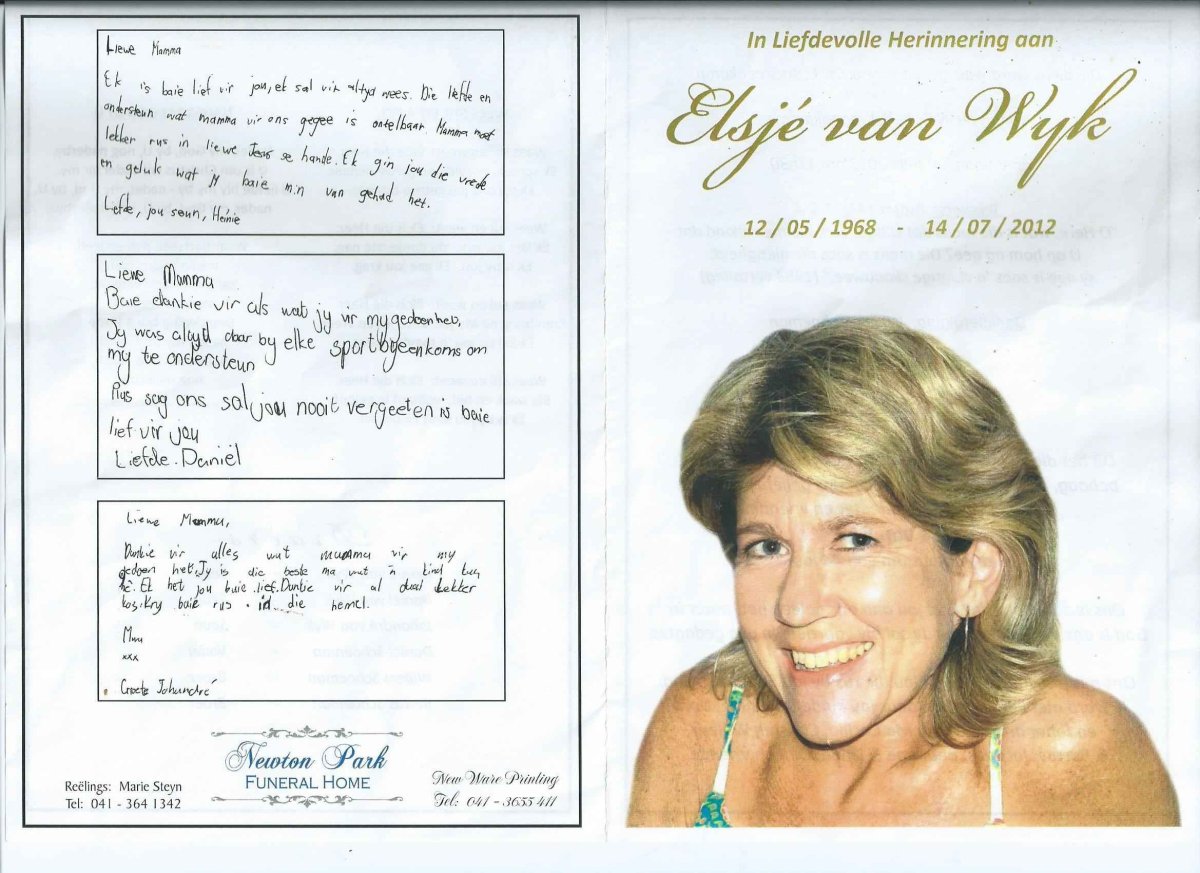 Liewe Mamma
Ek is baie lief vir jou, ek sal vir altyd wees. Die liefde en
ondersteun wat mamma vir ons gegee is ontelbaar. Mamma moet
lekker rus in liewe Jesus se hande. Ek gin jou die vrede
en geluk wat jy baie min van gehad het.
Liefde, jou seun, Heinie
Liewe Mamma
Baie dankie vir als wat jy vir my gedoen het,
Jy was altyd daar by elke sportbyeenkoms om
my te ondersteun
Plus sag ons sal jou nooit vergeeten is baie
lief vir jou
Liefde. Daniël
Liewe Mamma,
Dankie vir alles wat mamma vir my
gedoen het. Jy is die beste ma wat 'n kind kan
hê. Ek het jou baie lief. Dankie vir al daai lekker
kos. Kry baie rus in die hemel.
Mwa
xxx
Groete Johandré
Newton Park
FUNERAL HOME
Reëlings: Marie Steyn
Tel: 041 - 364 1342
New Ware Printing
Tel: 041 - 3655 411
In Liefdevolle Herinnering aan
Elsjé van Wyk
12 / 05 / 1968 - 14 / 07 / 2012